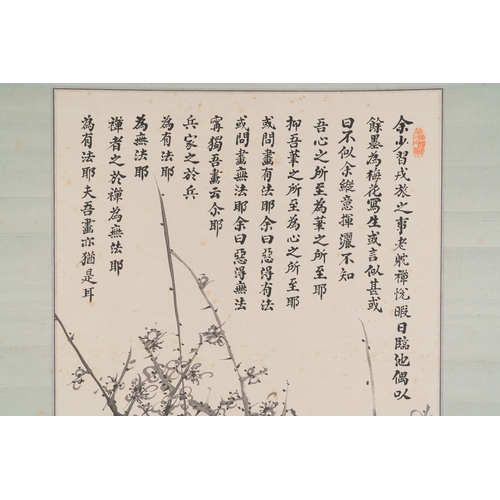 余少習戎旅之事老耽禪悅暇日臨池偶以
餘墨為梅花寫生或言似甚或
曰不似余縱意揮灑不知
吾心之所至為筆之所至耶
抑吾筆之所至為心之所至耶
或問畫有法耶余曰惡得有法
或問畫無法耶余曰惡得無法
寗獨吾畫云尒耶
兵家之於兵
為有法耶
為無法耶
禪者之於禪為無法耶
為有法耶夫吾畫亦猶是耳